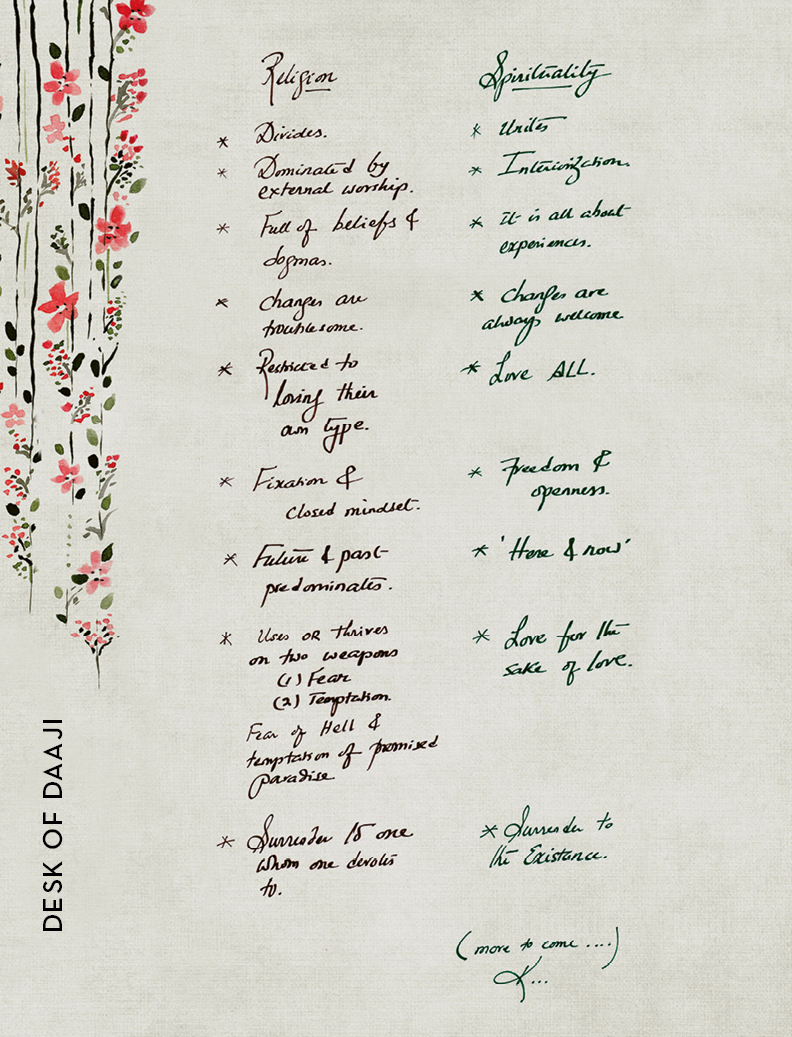 Religion
* Divides.
* Dominated by
external worship.
* Full of beliefs &
dogmas.
* Changes are
troublesome.
* Restricted to
loving their
own type.
* Fixation &
closed mindset.
* Future & past
predominates.
* Uses OR thrives
on two weapons
(1) Fear
(2) Temptation.
Fear of Hell &
temptation of promised
paradise
* Surrender to one
whom one devotes
to.
Spirituality
* Unites
* Interiorization.
* It is all about
experiences.
* Changes are
always welcome.
* Love ALL.
* Freedom &
openness.
* 'Here & now'
* Love for the
sake of love.
* Surrender to
the Existance.
(more to come ....)
K...
DESK OF DAAJI